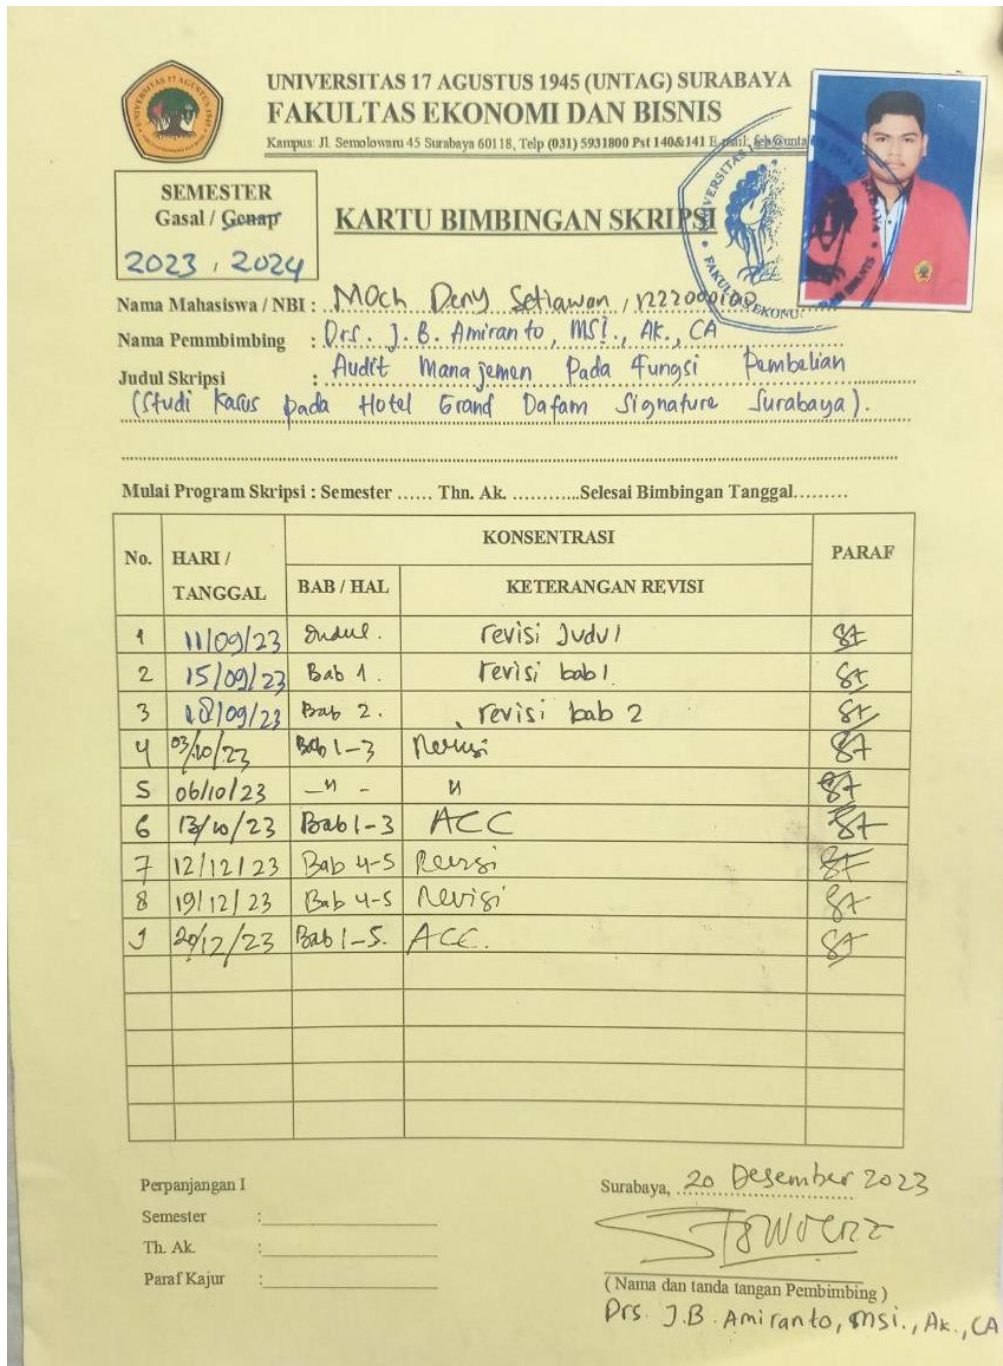 UNIVERSITAS 17 AGUSTUS 1945 (UNTAG) SURABAYA
FAKULTAS EKONOMI DAN BISNIS
Kampus: Jl. Semolowaru 45 Surabaya 60118, Telp (031) 5931800 Pst 140&141 E-mail: feb@unta
SEMESTER
Gasal / Genap
2023 , 2024
KARTU BIMBINGAN SKRIPSI
Nama Mahasiswa / NBI : Moch Deny Setiawan /
Nama Pemmbimbing : Drs. J. B. Amiranto, MSi., Ak., CA
Judul Skripsi : Audit Manajemen Pada Fungsi Pembelian
(Studi Kasus pada Hotel Grand Dafam Signature Surabaya).
Mulai Program Skripsi : Semester ...... Thn. Ak. ............Selesai Bimbingan Tanggal.........
No. HARI / TANGGAL KONSENTRASI PARAF
BAB / HAL KETERANGAN REVISI
1 11/09/23 Judul. revisi Judul
2 15/09/23 Bab 1. revisi bab 1
3 18/09/23 Bab 2. revisi bab 2
4 03/10/23 Bab 1-3 Revisi
5 06/10/23 -"- "
6 13/10/23 Bab 1-3 ACC
7 12/12/23 Bab 4-5 Revisi
8 19/12/23 Bab 4-5 Revisi
9 20/12/23 Bab 1-5. ACC.
Perpanjangan I
Semester :
Th. Ak. :
Paraf Kajur :
Surabaya, 20 Desember 2023
( Nama dan tanda tangan Pembimbing )
Drs. J.B. Amiranto, Msi., Ak., CA